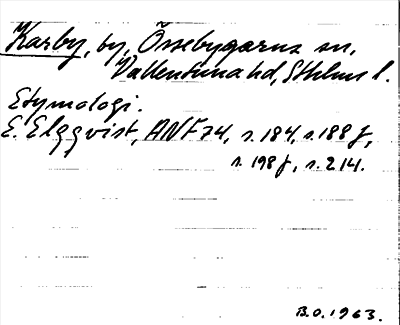 Karby, by, Össebygarns sn,
Vallentuna hd, Sthlms l.
Etymologi.
E. Elgqvist, ANF 74, s. 184, s. 188 f,
s. 198 f, s. 214.
B.O. 1963.